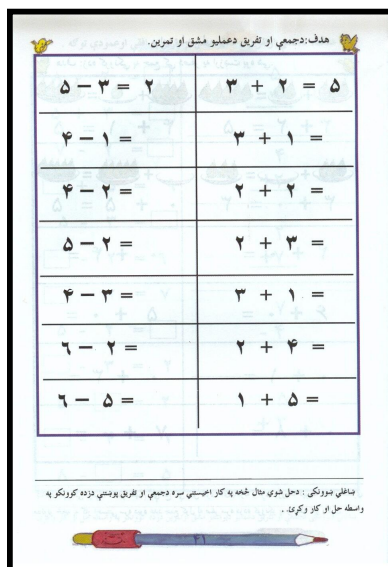 هدف:دجمعې او تفریق دعملیو مشق او تمرین.
۵ − ۳ = ۲
۳ + ۲ = ۵
۴ − ۱ =
۳ + ۱ =
۴ − ۲ =
۲ + ۲ =
۵ − ۲ =
۲ + ۳ =
۴ − ۳ =
۳ + ۱ =
۶ − ۲ =
۲ + ۴ =
۶ − ۵ =
۱ + ۵ =
ښاغلي ښوونکی : دحل شوي مثال څخه په کار اخیستنې سره دجمعې او تفریق پوښتنې دزده کوونکو په
واسطه حل او کار وکړئ. .